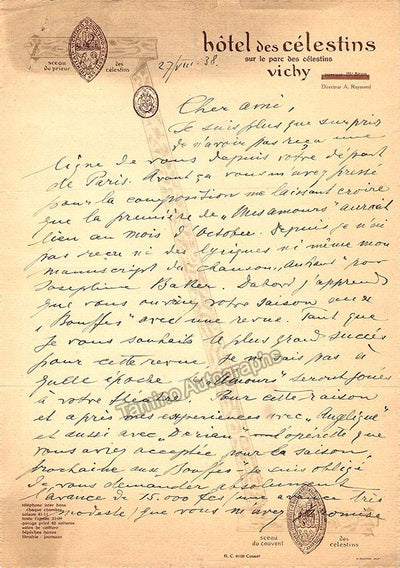 hôtel des célestins
sur le parc des célestins
vichy
Directeur A. Raymond
sceau
du prieur
des
célestins
27/VIII 38.
Cher ami,
Je suis plus que surpris
de n'avoir pas reçu une
ligne de vous depuis votre départ
de Paris. Avant ça vous m'avez pressé
pour la composition me laissant croire
que la première de „Mes amours" aurait
lieu au mois d'Octobre. Depuis je n'ai
pas reçu ni des lyriques ni même mon
manuscript du chanson pour
Josephine Baker. D'abord j'apprends
que vous ouvrirez votre saison aux
„Bouffes" avec une revue. Tant que
je vous souhaite le plus grand succès
pour cette revue je ne sais pas à
quelle époque „Amours" seront joués
à votre théâtre. Pour cette raison
et après mes experiences avec „Anglique"
et aussi avec l'opérette que
vous avez acceptée pour la saison
prochaine aux Bouffes – je suis obligé
de vous demander absolument
l'avance de 15.000 fcs (une avance très
modeste) que vous m'avez promise
Tamino Autographs
téléphone dans
chaque chambre
garage privé 40 voitures
salon de coiffure
dépêches havas
librairie - journaux
sceau
du couvent
des
célestins
R. C. 9108 Cusset